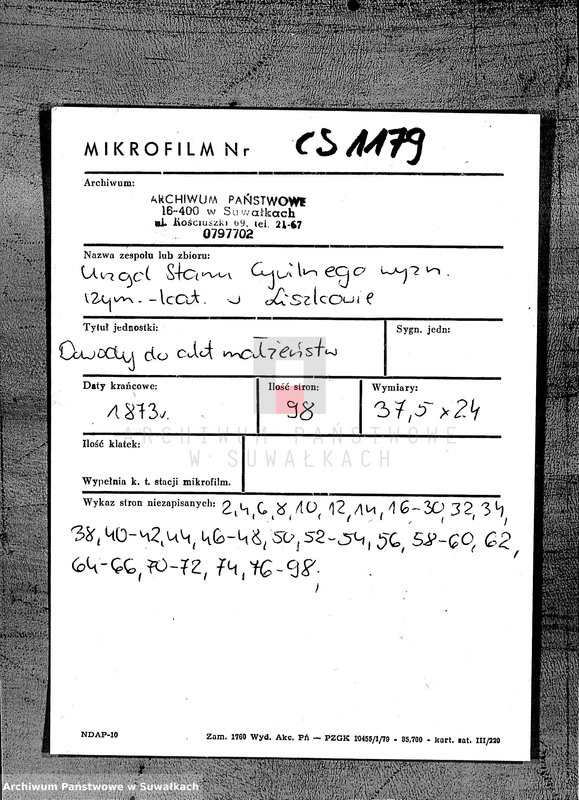 MIKROFILM Nr CS 1179
Archiwum:
ARCHIWUM PAŃSTWOWE
16-400 w Suwałkach
ul. Kościuszki 69, tel. 21-67
0797702
Nazwa zespołu lub zbioru:
Urząd Stanu Cywilnego wyzn.
rzym.-kat. w Liszkowie
Tytuł jednostki:
Sygn. jedn:
Dowody do akt małżeństw
Daty krańcowe:
Ilość stron:
Wymiary:
1873r.
98
37,5 x 24
ARCHIWUM PAŃSTWOWE
W SUWAŁKACH
Ilość klatek:
Wypełnia k. t. stacji mikrofilm.
Wykaz stron niezapisanych: 2,4,6,8,10,12,14,16-30,32,34,
38,40-42,44,46-48,50,52-54,56,58-60,62,
64-66,70-72,74,76-98.
NDAP-10
Zam. 1760 Wyd. Akc. Pń — PZGK 10455/I/79 - 85.700 - kart. sat. III/220
Archiwum Państwowe w Suwałkach